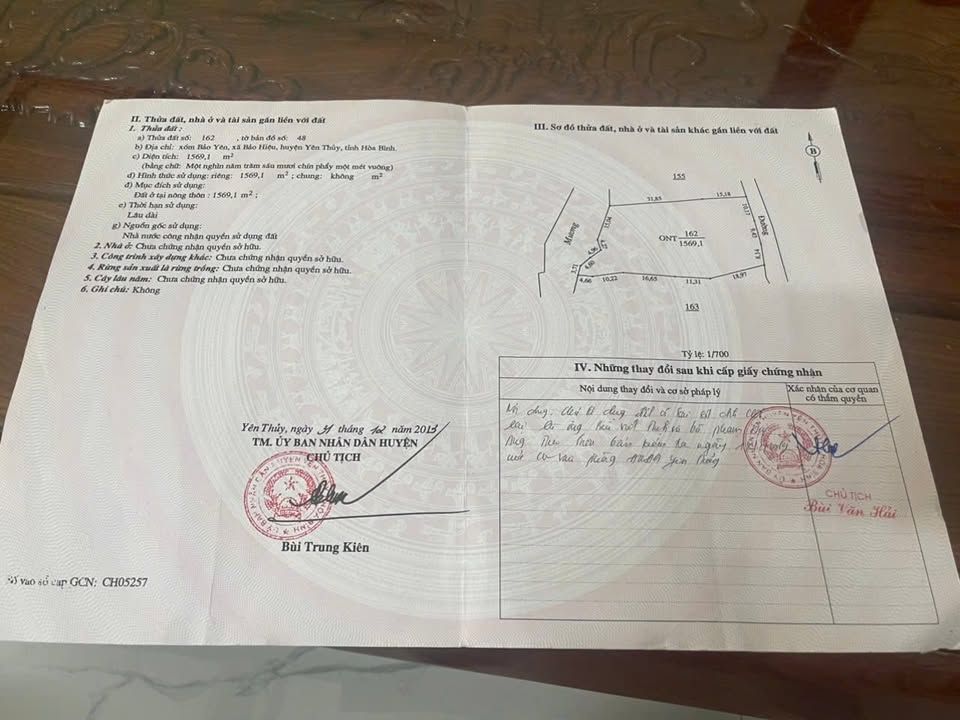 II. Thửa đất, nhà ở và tài sản gắn liền với đất
1. Thửa đất :
a) Thửa đất số: 162 , tờ bản đồ số: 48
b) Địa chỉ: xóm Bảo Yên, xã Bảo Hiệu, huyện Yên Thủy, tỉnh Hòa Bình.
c) Diện tích: 1569,1 m²
(bằng chữ: Một nghìn năm trăm sáu mươi chín phẩy một mét vuông)
d) Hình thức sử dụng: riêng: 1569,1 m² ; chung: không m²
đ) Mục đích sử dụng:
Đất ở tại nông thôn : 1569,1 m² ;
e) Thời hạn sử dụng:
Lâu dài
g) Nguồn gốc sử dụng:
Nhà nước công nhận quyền sử dụng đất
2. Nhà ở: Chưa chứng nhận quyền sở hữu.
3. Công trình xây dựng khác: Chưa chứng nhận quyền sở hữu.
4. Rừng sản xuất là rừng trồng: Chưa chứng nhận quyền sở hữu.
5. Cây lâu năm: Chưa chứng nhận quyền sở hữu.
6. Ghi chú: Không
Yên Thủy, ngày 31 tháng 12 năm 2013
TM. ỦY BAN NHÂN DÂN HUYỆN
CHỦ TỊCH
Bùi Trung Kiên
Số vào sổ cấp GCN: CH05257
III. Sơ đồ thửa đất, nhà ở và tài sản khác gắn liền với đất
B
155
31,85
15,18
Mương
Đường
ONT 162
1569,1
4,66
10,22
16,65
11,31
18,95
163
Tỷ lệ: 1/700
IV. Những thay đổi sau khi cấp giấy chứng nhận
Nội dung thay đổi và cơ sở pháp lý
Xác nhận của cơ quan có thẩm quyền
CHỦ TỊCH
Bùi Văn Hải